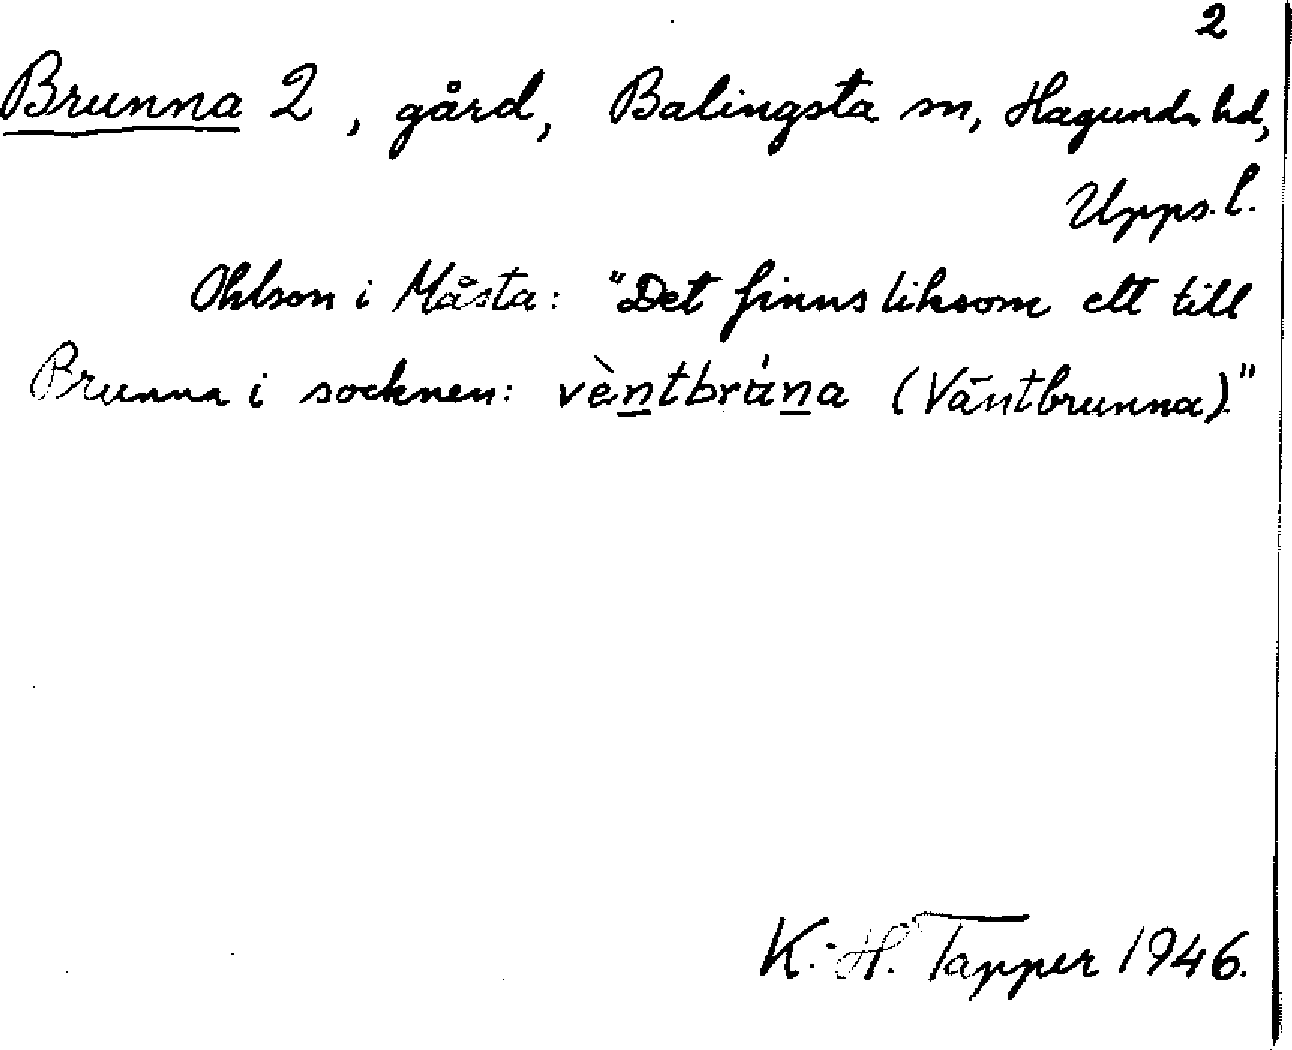 2
Brunna 2, gård, Balingsta sn, Hagunda hd,
Upps. l.
Ohlson i Måsta: "Det finns liksom ett till
Brunna i socknen: vèntbrúna (Väntbrunna)."
K.-H. Tapper 1946.